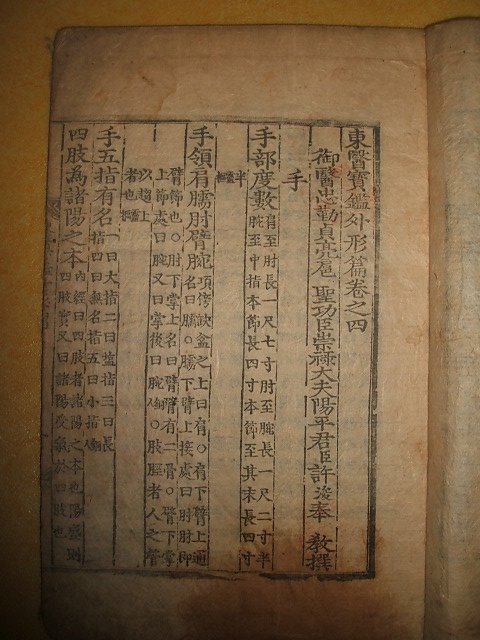 東醫寶鑑外形篇卷之四
御醫忠勤貞亮扈 聖功臣崇祿大夫陽平君臣許浚奉 教撰
手
手部度數
肩至肘長一尺七寸肘至腕長一尺二寸半
腕至中指本節長四寸本節至其末長四寸
半靈樞
手領肩臑肘臂腕
項傍缺盆之上曰肩○肩下臂上通
名曰臑○臑下臂上接處曰肘肘即
臂節也○肘下掌上名曰臂臂有二骨○臂下掌
上節處曰腕又曰掌後曰腕銅人○肢脛者人之管
以趨
者也靈樞
手五指有名
一曰大指二曰鹽指三曰長
指四曰無名指五曰小指銅人
四肢爲諸陽之本
內經曰四肢者諸陽之本也陽盛則
四肢實又曰諸陽受氣於四肢也